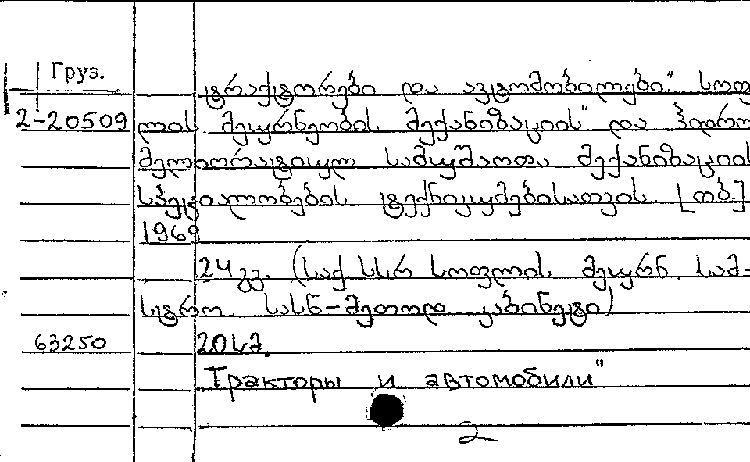 Груз.
ტრაქტორები და ავტომობილები." სოფ
2-20509 ლის მეურნეობის. მექანიზაციის" და ჰიდრო
მელიორატიულ სამუშაოთა მექანიზაციის
სპეციალობების ტექნიკუმებისათვის. [თბ.]
1969
24 გვ. (საქ სსრ სოფლის. მეურნ. სამ-
ნისტრო სასწ-მეთოდ კაბინეტი)
63250 20 სმ.
Тракторы и автомобили"
2